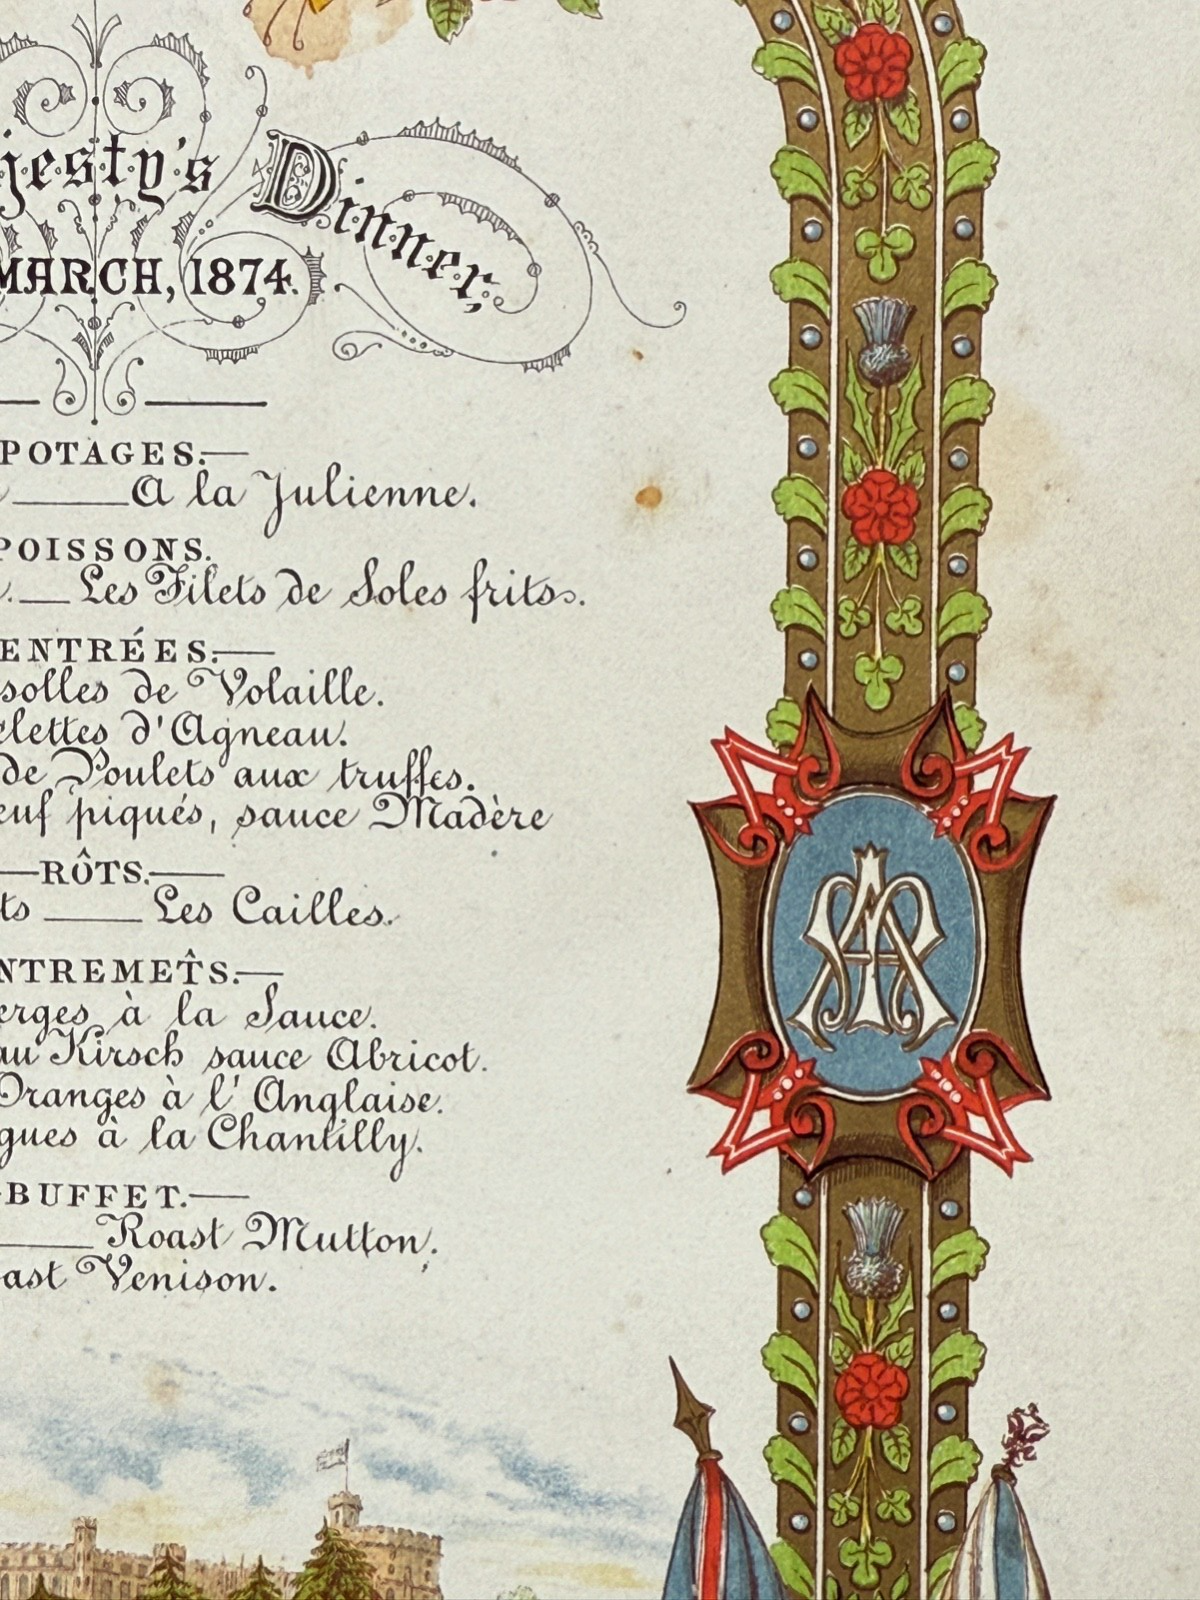 jesty's Dinner,
MARCH, 1874.
POTAGES.
A la Julienne.
POISSONS.
Les Filets de Soles frits.
ENTRÉES.
solles de Volaille.
elettes d'Agneau.
de Poulets aux truffes.
euf piqués, sauce Madère
RÔTS.
ts Les Cailles.
NTREMET̂S.
erges à la Sauce.
au Kirsch sauce Abricot.
Oranges à l'Anglaise.
gues à la Chantilly.
BUFFET.
Roast Mutton.
oast Venison.